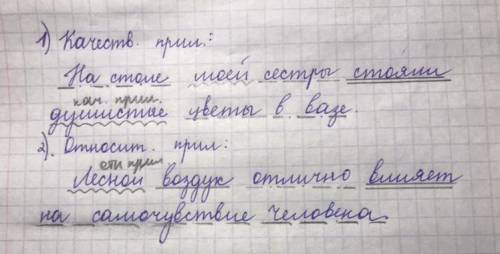 1) Качеств. прил.:
На столе моей сестры стояли
кач. прил.
душистые цветы в вазе.
2). Относит. прил:
отн прил
Лесной воздух отлично влияет
на самочувствие человека.